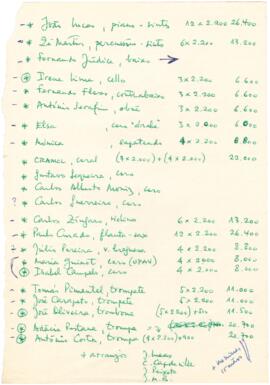 - * João Lucas, piano - sintes 12 x 2.200 26.400
- * Zé Martins, percussões - sintes 6 x 2.200 13.200
- * Fernando Júdice, baixo →
- * Irene Lima, cello 3 x 2.200 6.600
- * Fernando Flores, contrabaixo 3 x 2.200 6.600
- * António Serafim, oboé 3 x 2.200 6.600
- * Elsa, coro 6.000
- * Mónica, 4 x 2.200 8.800
- * CRAMOL, coral (7 x 2000) + (4 x 2.000) 22.000
- * Gustavo Sequeira, coro
* Carlos Alberto Moniz, coro
? * Carlos Guerreiro, coro
- * Carlos Zíngaro, violino 6 x 2.200 13.200
- * Paulo Curado, flauta - sax 12 x 2.200 26.400
* Júlio Pereira, v. braguesa 4 x 2.200 8.800
* Maria Guinot, coro (UPAV) 4 x 2000 8.000
* Isabel Campelo, coro 4 x 2.000 8.000
- * Tomás Pimentel, trompete 5 x 2.200 11.000
- * José Carrapato, trompete 5 x 2.200 11.000
- * José Oliveira, trombone (5 x 2200) + 500 11.500
- * Adácio Pestana, trompa 20.700
- * António Costa, trompa 20.700
+ arranjos J. Lucas
Capdeville
Peixoto
J.M.B.